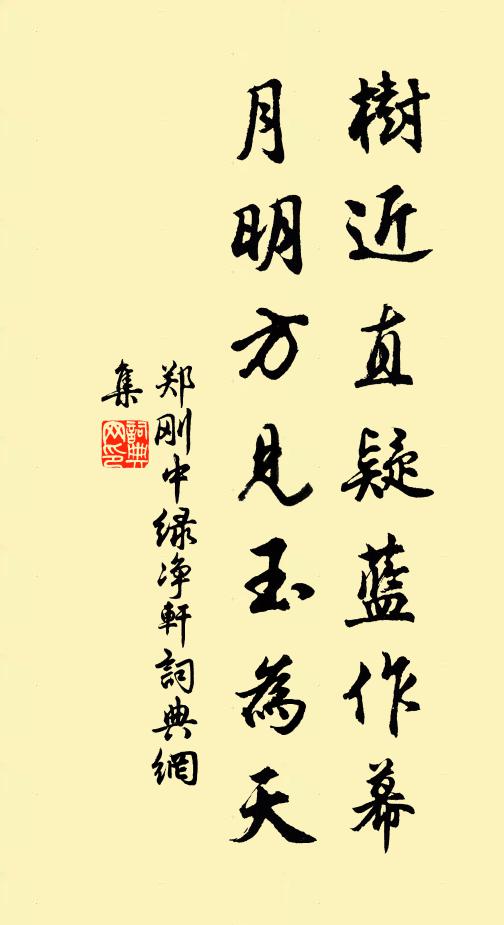 樹近直疑藍作幕
月明方見玉為天
郑刚中绿净軒詞典網
集
詞典网印